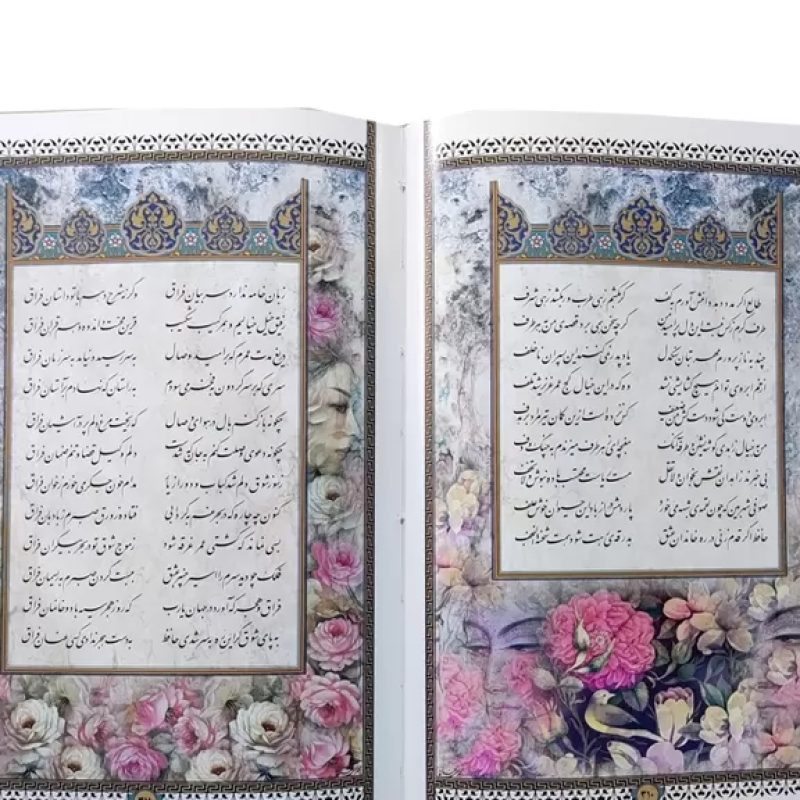 طالع اگر مدد دهد دامنش آورم به کف گر بکشم زهی طرب ور بکشد زهی شرف
طرف کرم ز کس نبست این دل پر امید من گرچه سخن همی برد قصه من به هر طرف
چند به ناز پرورم مهر بتان سنگدل یاد پدر نمی کنند این پسران ناخلف
از خم ابروی توام هیچ گشایشی نشد وه که در این خیال کج عمر عزیز شد تلف
ابروی دوست کی شود دست کش ضعیف کس نزده است ازین کمان تیر مراد بر هدف
من به خیال زاهدی گوشه نشین و طرفه آنک مغبچه ای ز هر طرف می زندم به چنگ و دف
بی خبرند زاهدان نقش بخوان و لاتقل مست ریاست محتسب باده بنوش و لاتخف
صوفی شهر بین که چون لقمه شبهه می خورد پاردمش دراز باد این حیوان خوش علف
حافظ اگر قدم زنی در ره خاندان عشق بدرقه رهت شود همت شحنه نجف
۳۱۰
زبان خامه ندارد سر بیان فراق وگرنه شرح دهم با تو داستان فراق
رفیق خیل خیالیم و همرکیب شکیب قرین محنت و اندوه و همقران فراق
دریغ مدت عمرم که بر امید وصال به سر رسید و نیامد به سر زمان فراق
سری که بر سر گردون به فخر می سودم به راستان که نهادم بر آستان فراق
چگونه باز کنم بال در هوای وصال که ریخت مرغ دلم پر در آشیان فراق
چگونه دعوی وصلت کنم به جان که شدست دلم وکیل قضا و تنم ضمان فراق
ز سوز شوق دلم شد کباب و دور از یار مدام خون جگر می خورم ز خوان فراق
کنون چه چاره که در بحر غم به گردابی فتاده زورق صبرم ز بادبان فراق
بسی نماند که کشتی عمر غرقه شود ز موج شوق تو در بحر بیکران فراق
فلک چو دید سرم را اسیر چنبر عشق ببست گردن صبرم به ریسمان فراق
فراق و هجر که آورد در جهان یارب که روز هجر سیه باد و خانمان فراق
به پای شوق گر این ره به سر شدی حافظ به دست هجر ندادی کسی عنان فراق